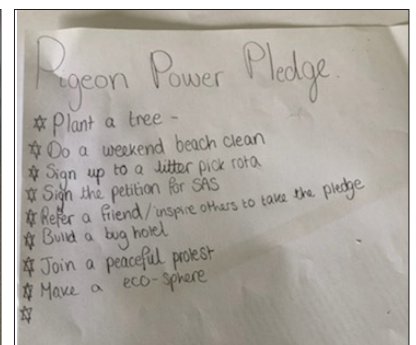 Pigeon Power Pledge.
☆ Plant a tree -
☆ Do a weekend beach clean
☆ Sign up to a litter pick rota
☆ Sign the petition for SAS
☆ Refer a friend/inspire others to take the pledge
☆ Build a bug hotel
☆ Join a peaceful protest
☆ Make a eco-sphere
☆